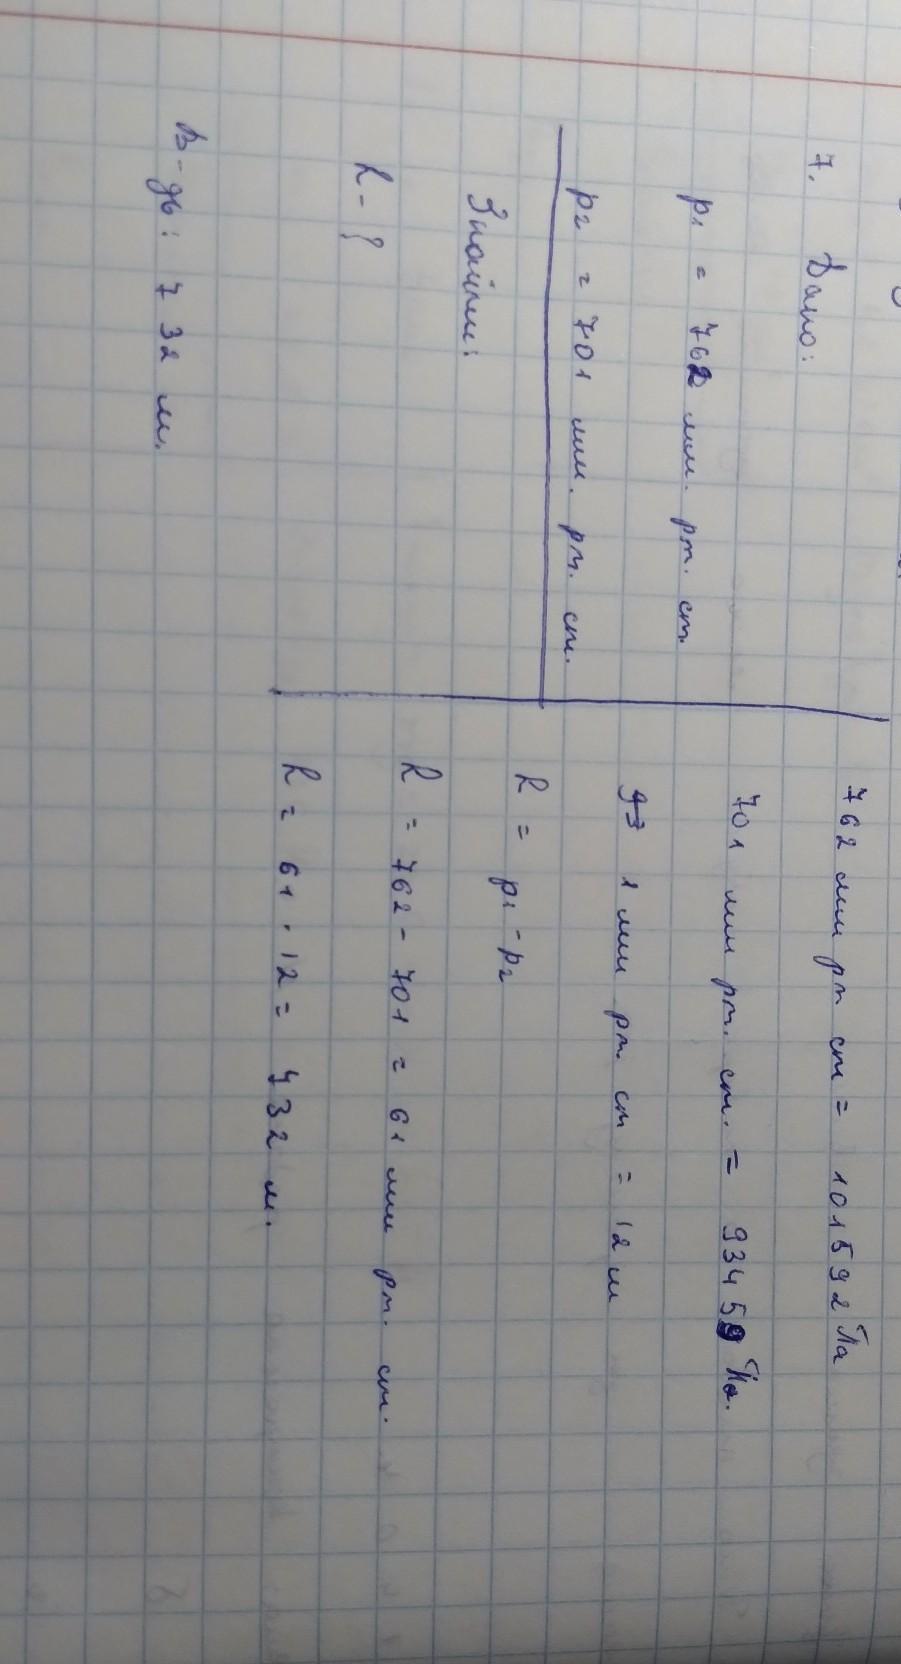 7. Дано:
p₁ = 762 мм. рт. ст.
p₂ = 701 мм. рт. ст.
Знайти:
h - ?
762 мм рт ст = 101592 Па
701 мм рт. ст. = 93459 Па.
1 мм рт. ст = 12 м
h = p₁ - p₂
h = 762 - 701 = 61 мм рт. ст.
h = 61 · 12 = 732 м.
В-дь: 732 м.